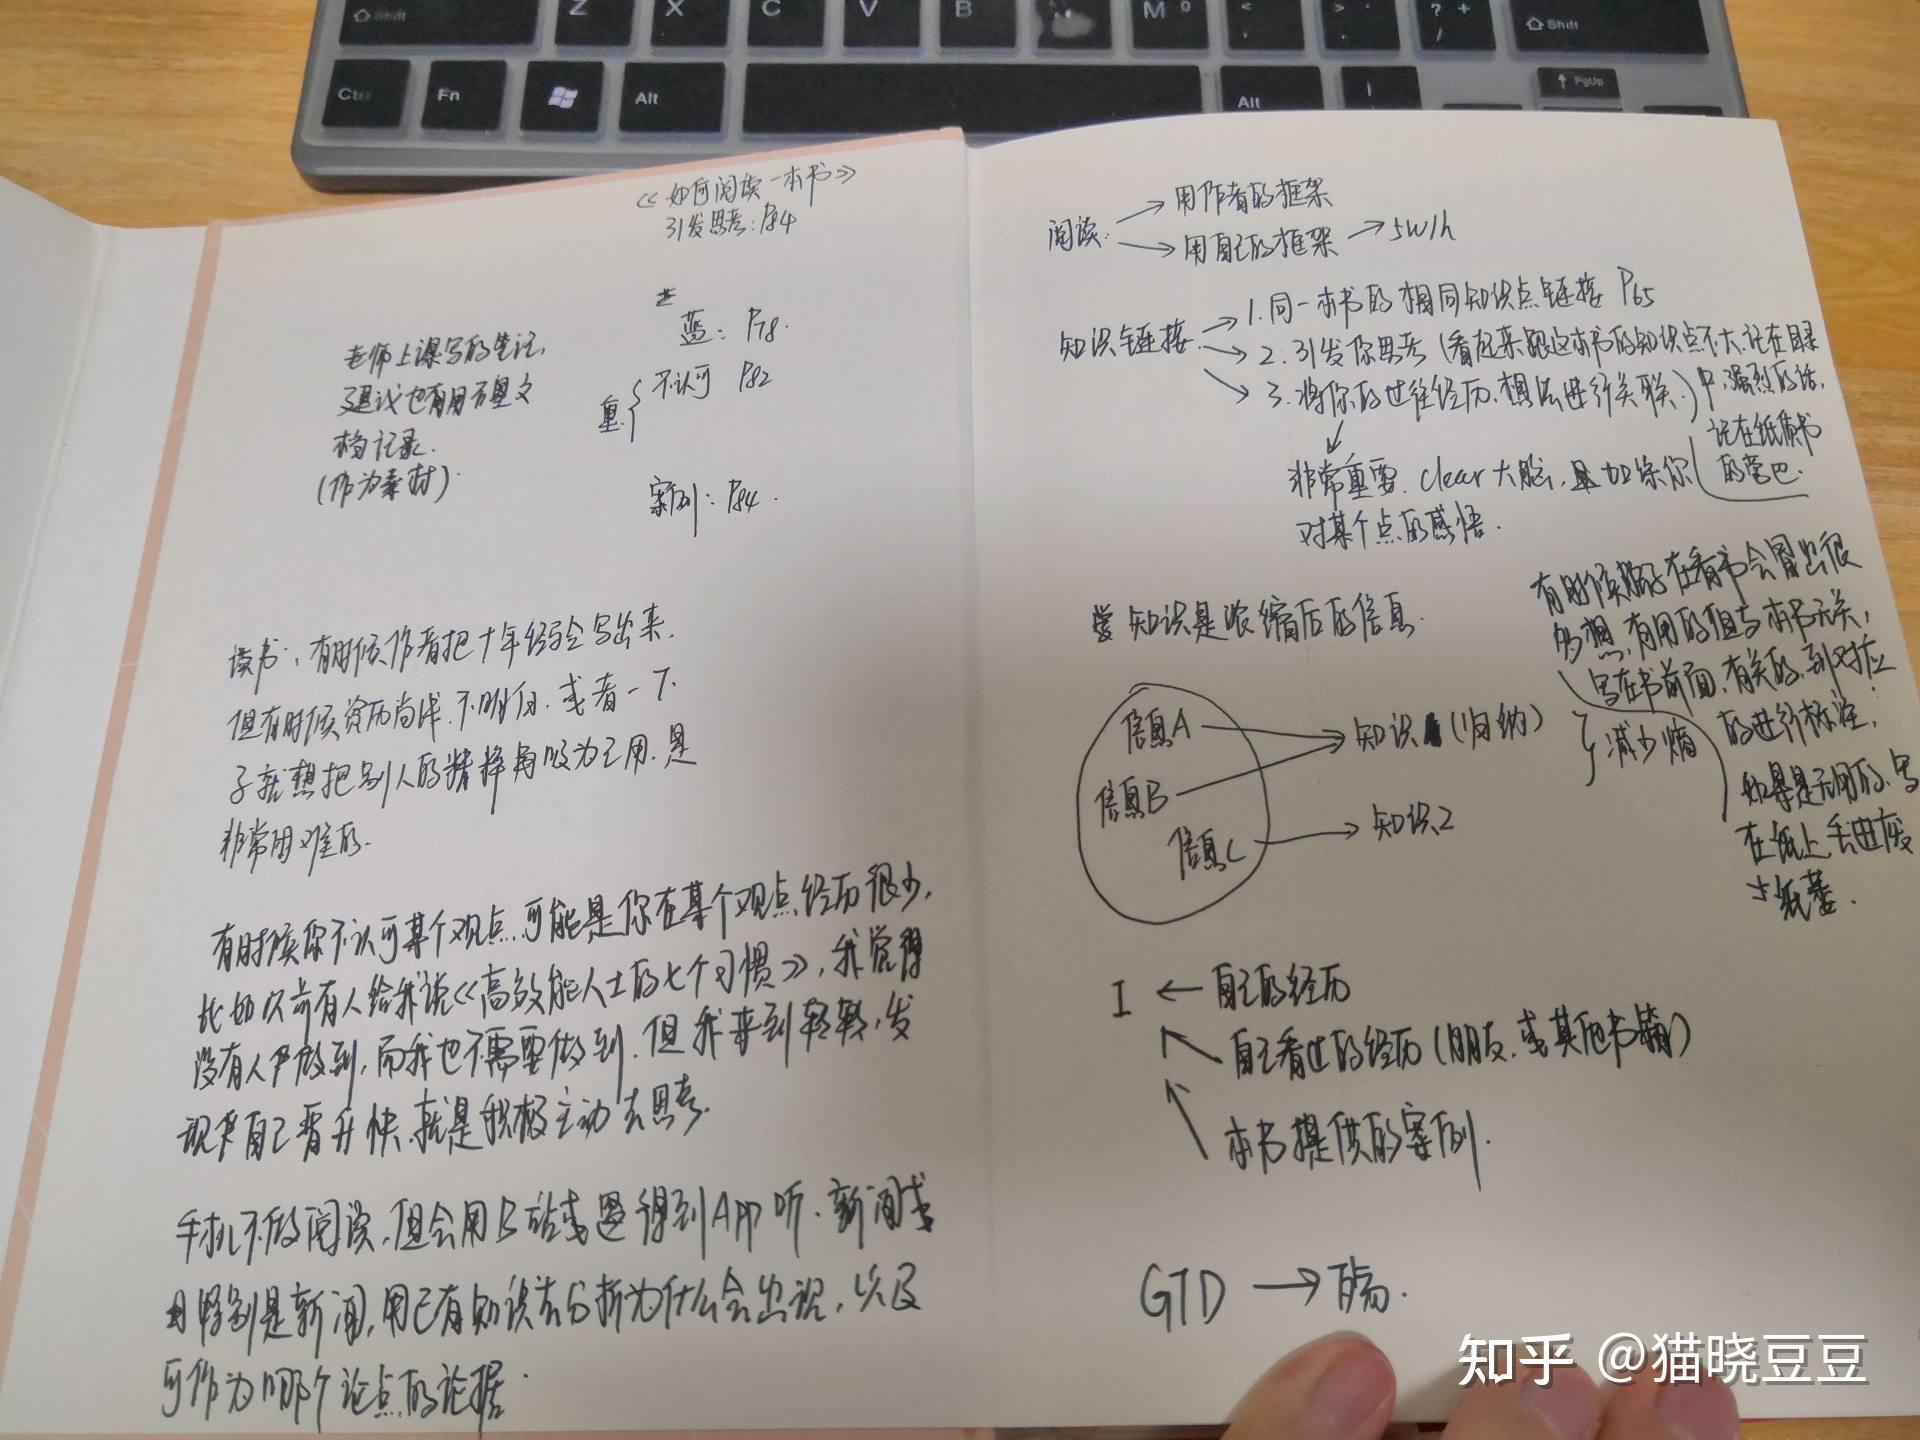 Shift
Z
X
C
V
B
M
Shift
Ctrl
Fn
Alt
Alt
PgUp
《如何阅读一本书》
引发思考：P84
蓝：P78.
老师上课写的笔记，
建议也有用万里文
档记录.
(作为素材).
重.
不认可 P82
案例：P84.
读书，有时候作者把十年经验写出来，
但有时候资历尚浅，不明白，或者一下
子就想把别人的精华都吸为己用，是
非常困难的.
有时候你不认可某个观点，可能是你在某个观点经历很少，
比如以前有人给我说《高效能人士的七个习惯》，我觉得
没有人做到，而我也不需要做到，但我来到，发
现自己晋升快，就是积极主动去思考.
手机不做阅读，但会用B站或得到APP听，新闻或
特别是新闻，用已有知识去分析为什么会出现，以及
可作为哪个论点的论据.
阅读：
用作者的框架
用自己的框架 5W1h
知识链接
1.同一本书的相同知识点链接 P65
2.引发你思考（看起来跟这本书的知识点不大，记在目录
3.将你的过往经历、想法进行关联.）中，强烈的话，
记在纸质书
的旁边.
非常重要. clear大脑，加深你
对某个点的感悟.
知识是浓缩后的信息.
有时候脑子在看书会冒出很
多想，有用的但与本书无关，
写在书前面，有关的，到对应
的进行标注，
如果是无用的，写
在纸上，丢进废
纸篓.
信息A
信息B
信息C
知识1（归纳）
知识2
减少熵
I
自己的经历
自己看过的经历（朋友，或其他书籍）
本书提供的案例.
GTD
知乎 @猫晓豆豆